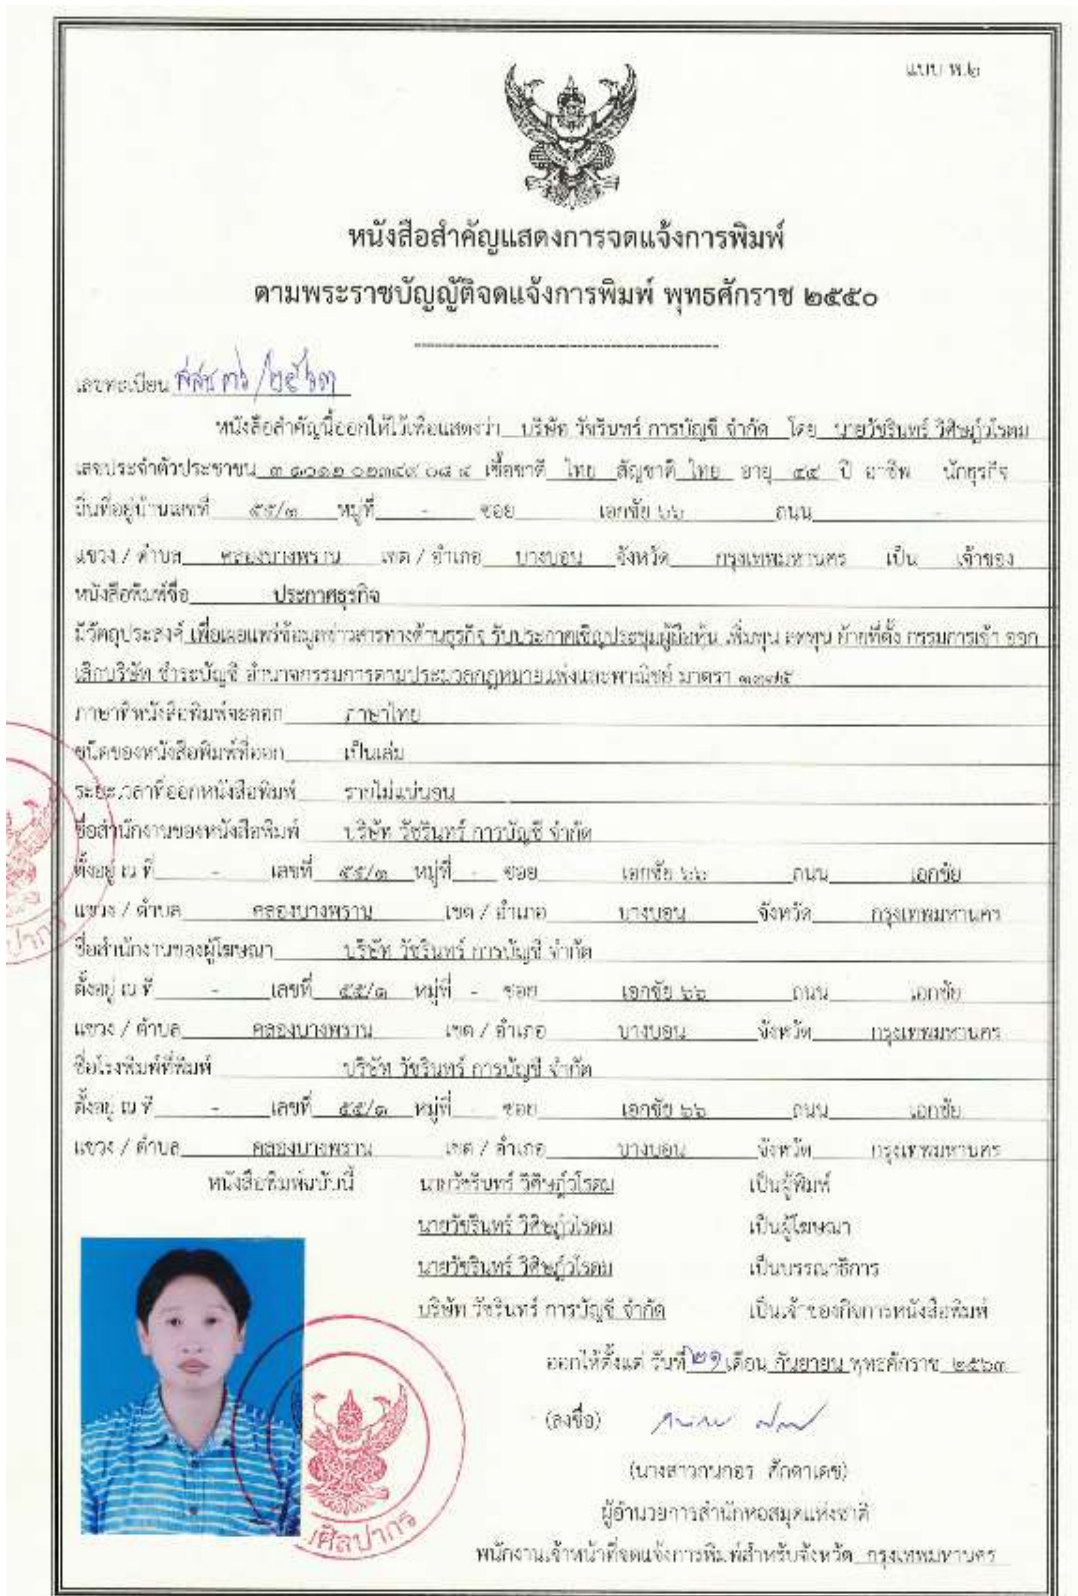 แบบ พ.๒
หนังสือสำคัญแสดงการจดแจ้งการพิมพ์
ตามพระราชบัญญัติจดแจ้งการพิมพ์ พุทธศักราช ๒๕๕๐
เลขทะเบียน สสช ๓๖/๒๕๖๓
หนังสือสำคัญนี้ออกให้ไว้เพื่อแสดงว่า บริษัท วัชรินทร์ การบัญชี จำกัด โดย นายวัชรินทร์ วิศิษฎ์วโรดม
เลขประจำตัวประชาชน เชื้อชาติ ไทย สัญชาติ ไทย อายุ ๔๕ ปี อาชีพ นักธุรกิจ
ถิ่นที่อยู่บ้านเลขที่ ๕๕/๑ หมู่ที่ - ซอย เอกชัย ๖๖ ถนน -
แขวง / ตำบล คลองบางพราน เขต / อำเภอ บางบอน จังหวัด กรุงเทพมหานคร เป็น เจ้าของ
หนังสือพิมพ์ชื่อ ประกาศธุรกิจ
มีวัตถุประสงค์ เพื่อเผยแพร่ข้อมูลข่าวสารทางด้านธุรกิจ รับประกาศเชิญประชุมผู้ถือหุ้น เพิ่มทุน ลดทุน ย้ายที่ตั้ง กรรมการเข้า ออก
เลิกบริษัท ชำระบัญชี อำนาจกรรมการตามประมวลกฎหมายแพ่งและพาณิชย์ มาตรา ๑๑๗๕
ภาษาที่หนังสือพิมพ์จะออก ภาษาไทย
ชนิดของหนังสือพิมพ์ที่ออก เป็นเล่ม
ระยะเวลาที่ออกหนังสือพิมพ์ รายไม่แน่นอน
ชื่อสำนักงานของหนังสือพิมพ์ บริษัท วัชรินทร์ การบัญชี จำกัด
ตั้งอยู่ ณ ที่ - เลขที่ ๕๕/๑ หมู่ที่ - ซอย เอกชัย ๖๖ ถนน เอกชัย
แขวง / ตำบล คลองบางพราน เขต / อำเภอ บางบอน จังหวัด กรุงเทพมหานคร
ชื่อสำนักงานของผู้โฆษณา บริษัท วัชรินทร์ การบัญชี จำกัด
ตั้งอยู่ ณ ที่ - เลขที่ ๕๕/๑ หมู่ที่ - ซอย เอกชัย ๖๖ ถนน เอกชัย
แขวง / ตำบล คลองบางพราน เขต / อำเภอ บางบอน จังหวัด กรุงเทพมหานคร
ชื่อโรงพิมพ์ที่พิมพ์ บริษัท วัชรินทร์ การบัญชี จำกัด
ตั้งอยู่ ณ ที่ - เลขที่ ๕๕/๑ หมู่ที่ - ซอย เอกชัย ๖๖ ถนน เอกชัย
แขวง / ตำบล คลองบางพราน เขต / อำเภอ บางบอน จังหวัด กรุงเทพมหานคร
หนังสือพิมพ์ฉบับนี้ นายวัชรินทร์ วิศิษฎ์วโรดม เป็นผู้พิมพ์
นายวัชรินทร์ วิศิษฎ์วโรดม เป็นผู้โฆษณา
นายวัชรินทร์ วิศิษฎ์วโรดม เป็นบรรณาธิการ
บริษัท วัชรินทร์ การบัญชี จำกัด เป็นเจ้าของกิจการหนังสือพิมพ์
ออกให้ตั้งแต่ วันที่ ๒๑ เดือน กันยายน พุทธศักราช ๒๕๖๓
(ลงชื่อ)
(นางสาวกนกอร ศักดาเดช)
ผู้อำนวยการสำนักหอสมุดแห่งชาติ
พนักงานเจ้าหน้าที่จดแจ้งการพิมพ์สำหรับจังหวัด กรุงเทพมหานคร